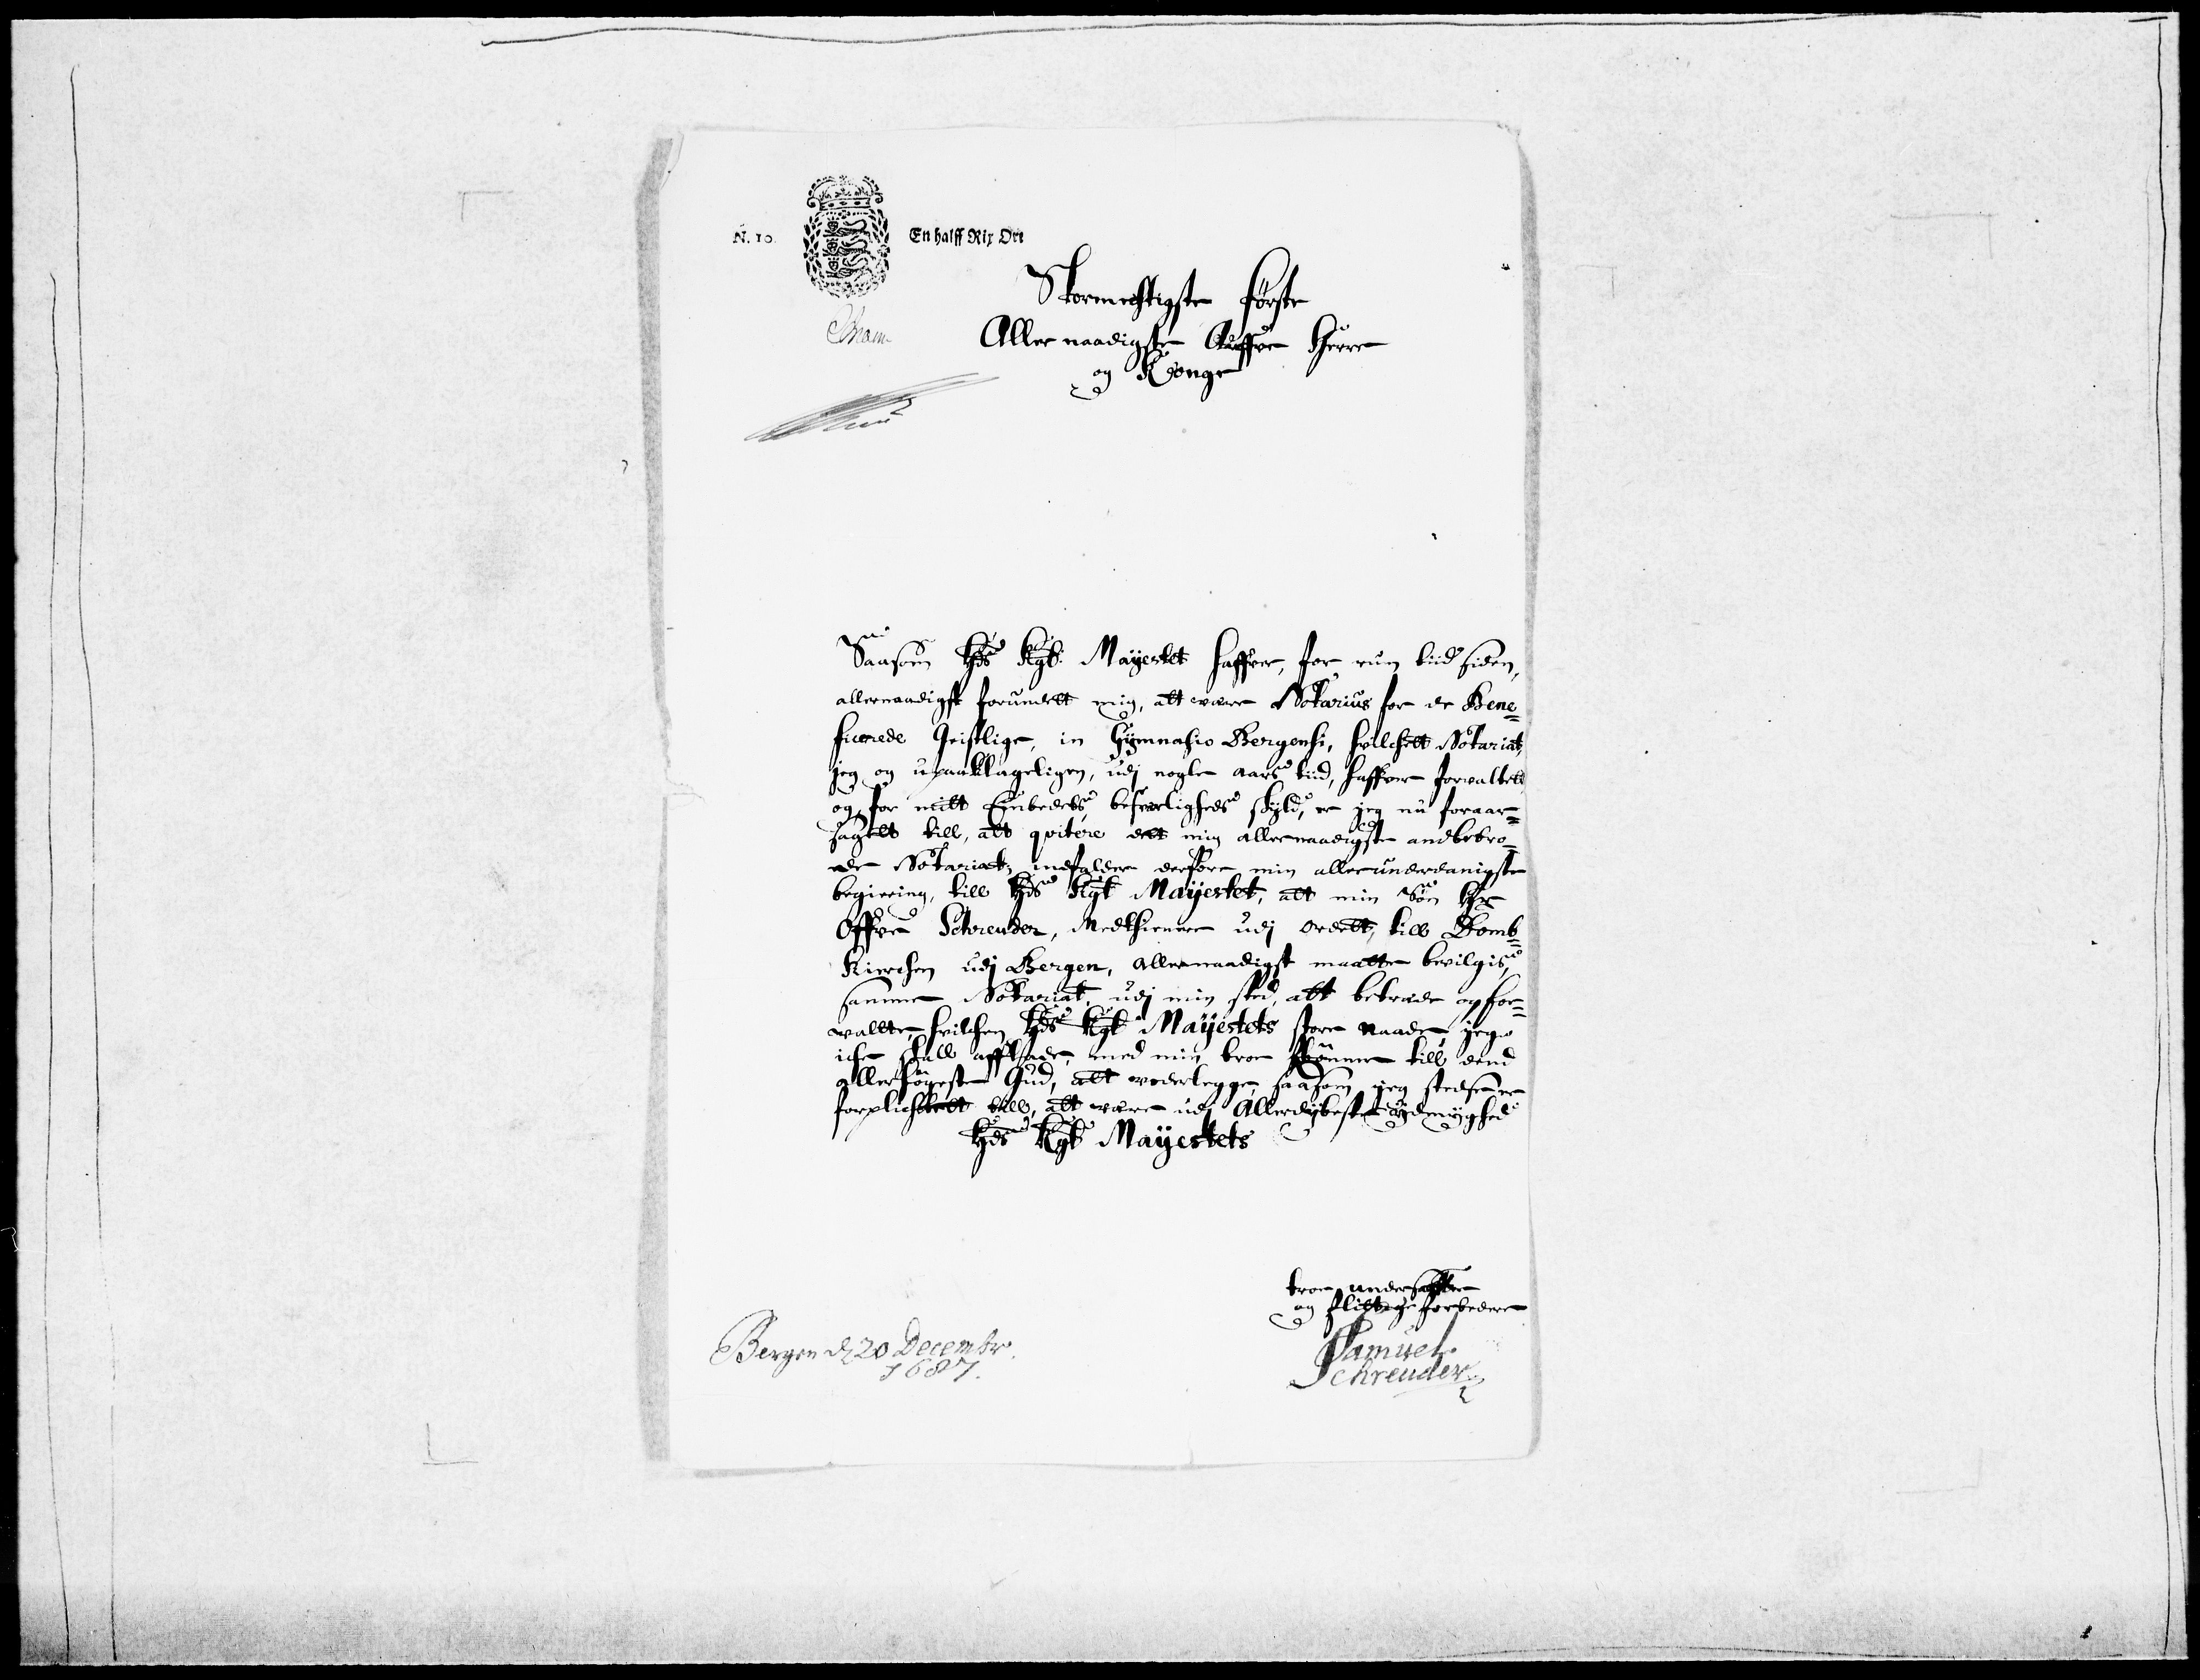 N. 10. En halff Rix Ort
Stormechtigste Förste
Aller naadigste Arffve Herre
og Konge
Saasom Eds Kgl: Mayestet haffver, for rum tiid siden,
allernaadigst forundt mig, att were Notarius for de Bene=
ficerede Geistlige, in Gymnasio Bergensi, hvilchett Notariat,
jeg og upaaklageligen, udj nogle aars tiid, haffver forvaltett
og, for mitt Embedets besverligheds skyld, er jeg nu foraar=
sagett till, att qvitere dett mig allernaadigste anbetro=
ede Notariat; indfalder derfore min allerunderdanigste
begiering, till Eds Kgl Mayestet, att min Sön Hr
Offve Schreuder, Medthienere udj ordett, till Domb=
Kirchen udj Bergen, allernaadigst maatte bevilgis,
samme Notariat, udj min sted, att betrede, og for=
vallte, hvilchen Eds Kgl Mayestets store naade, jeg
iche skall afflade, med min troe bönner till dend
allerhögeste Gud, att vederlegge, saasom jeg stedse er
forplichtett till, att were udj Allerdybeste ydmyghed
Eds Kgl Mayestets
troe undersaatte
og flittige forbedere
Samuel
Schreuder
Bergen d 20 Decembr.
1687.